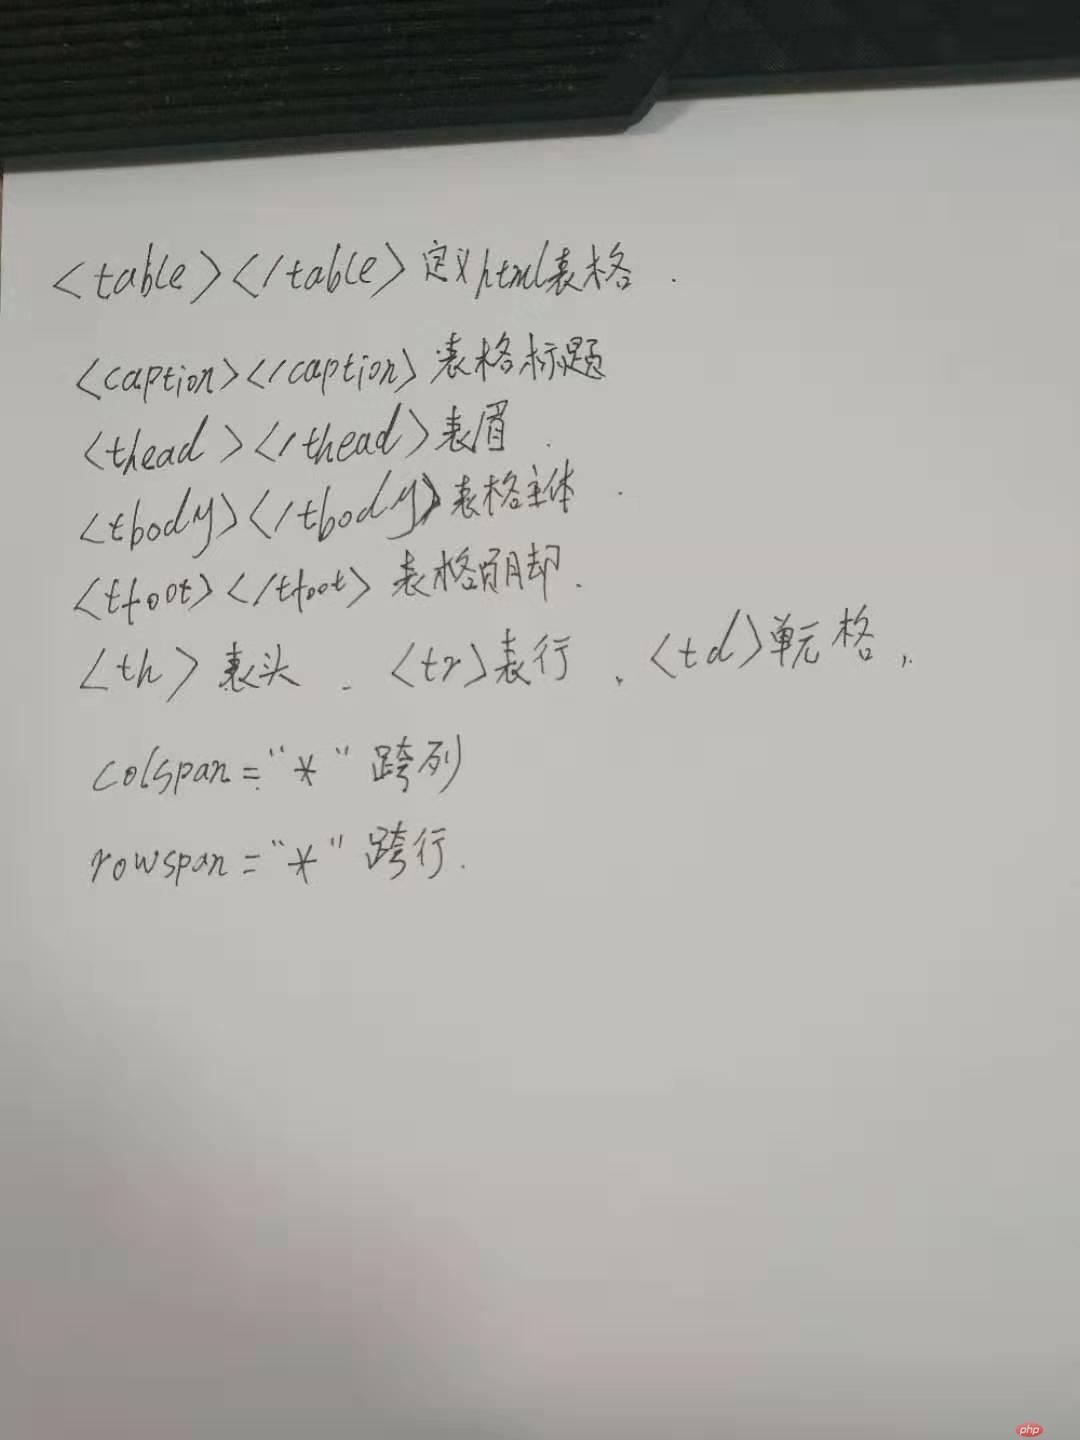 <table></table>定义html表格.
<caption></caption>表格标题
<thead></thead>表眉.
<tbody></tbody>表格主体.
<tfoot></tfoot>表格页脚.
<th>表头.<tr>表行.<td>单元格,.
colspan="*"跨列
rowspan="*"跨行.
php